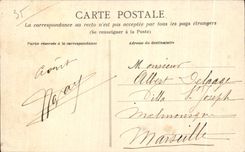 35
CARTE POSTALE
La correspondance au recto n'est pas acceptée par tous les pays étrangers
(Se renseigner à la Poste)
Partie réservée à la correspondance
Adresse du destinataire
Monsieur
Albert Delgage
Villa St Joseph
Malmousque
Marseille